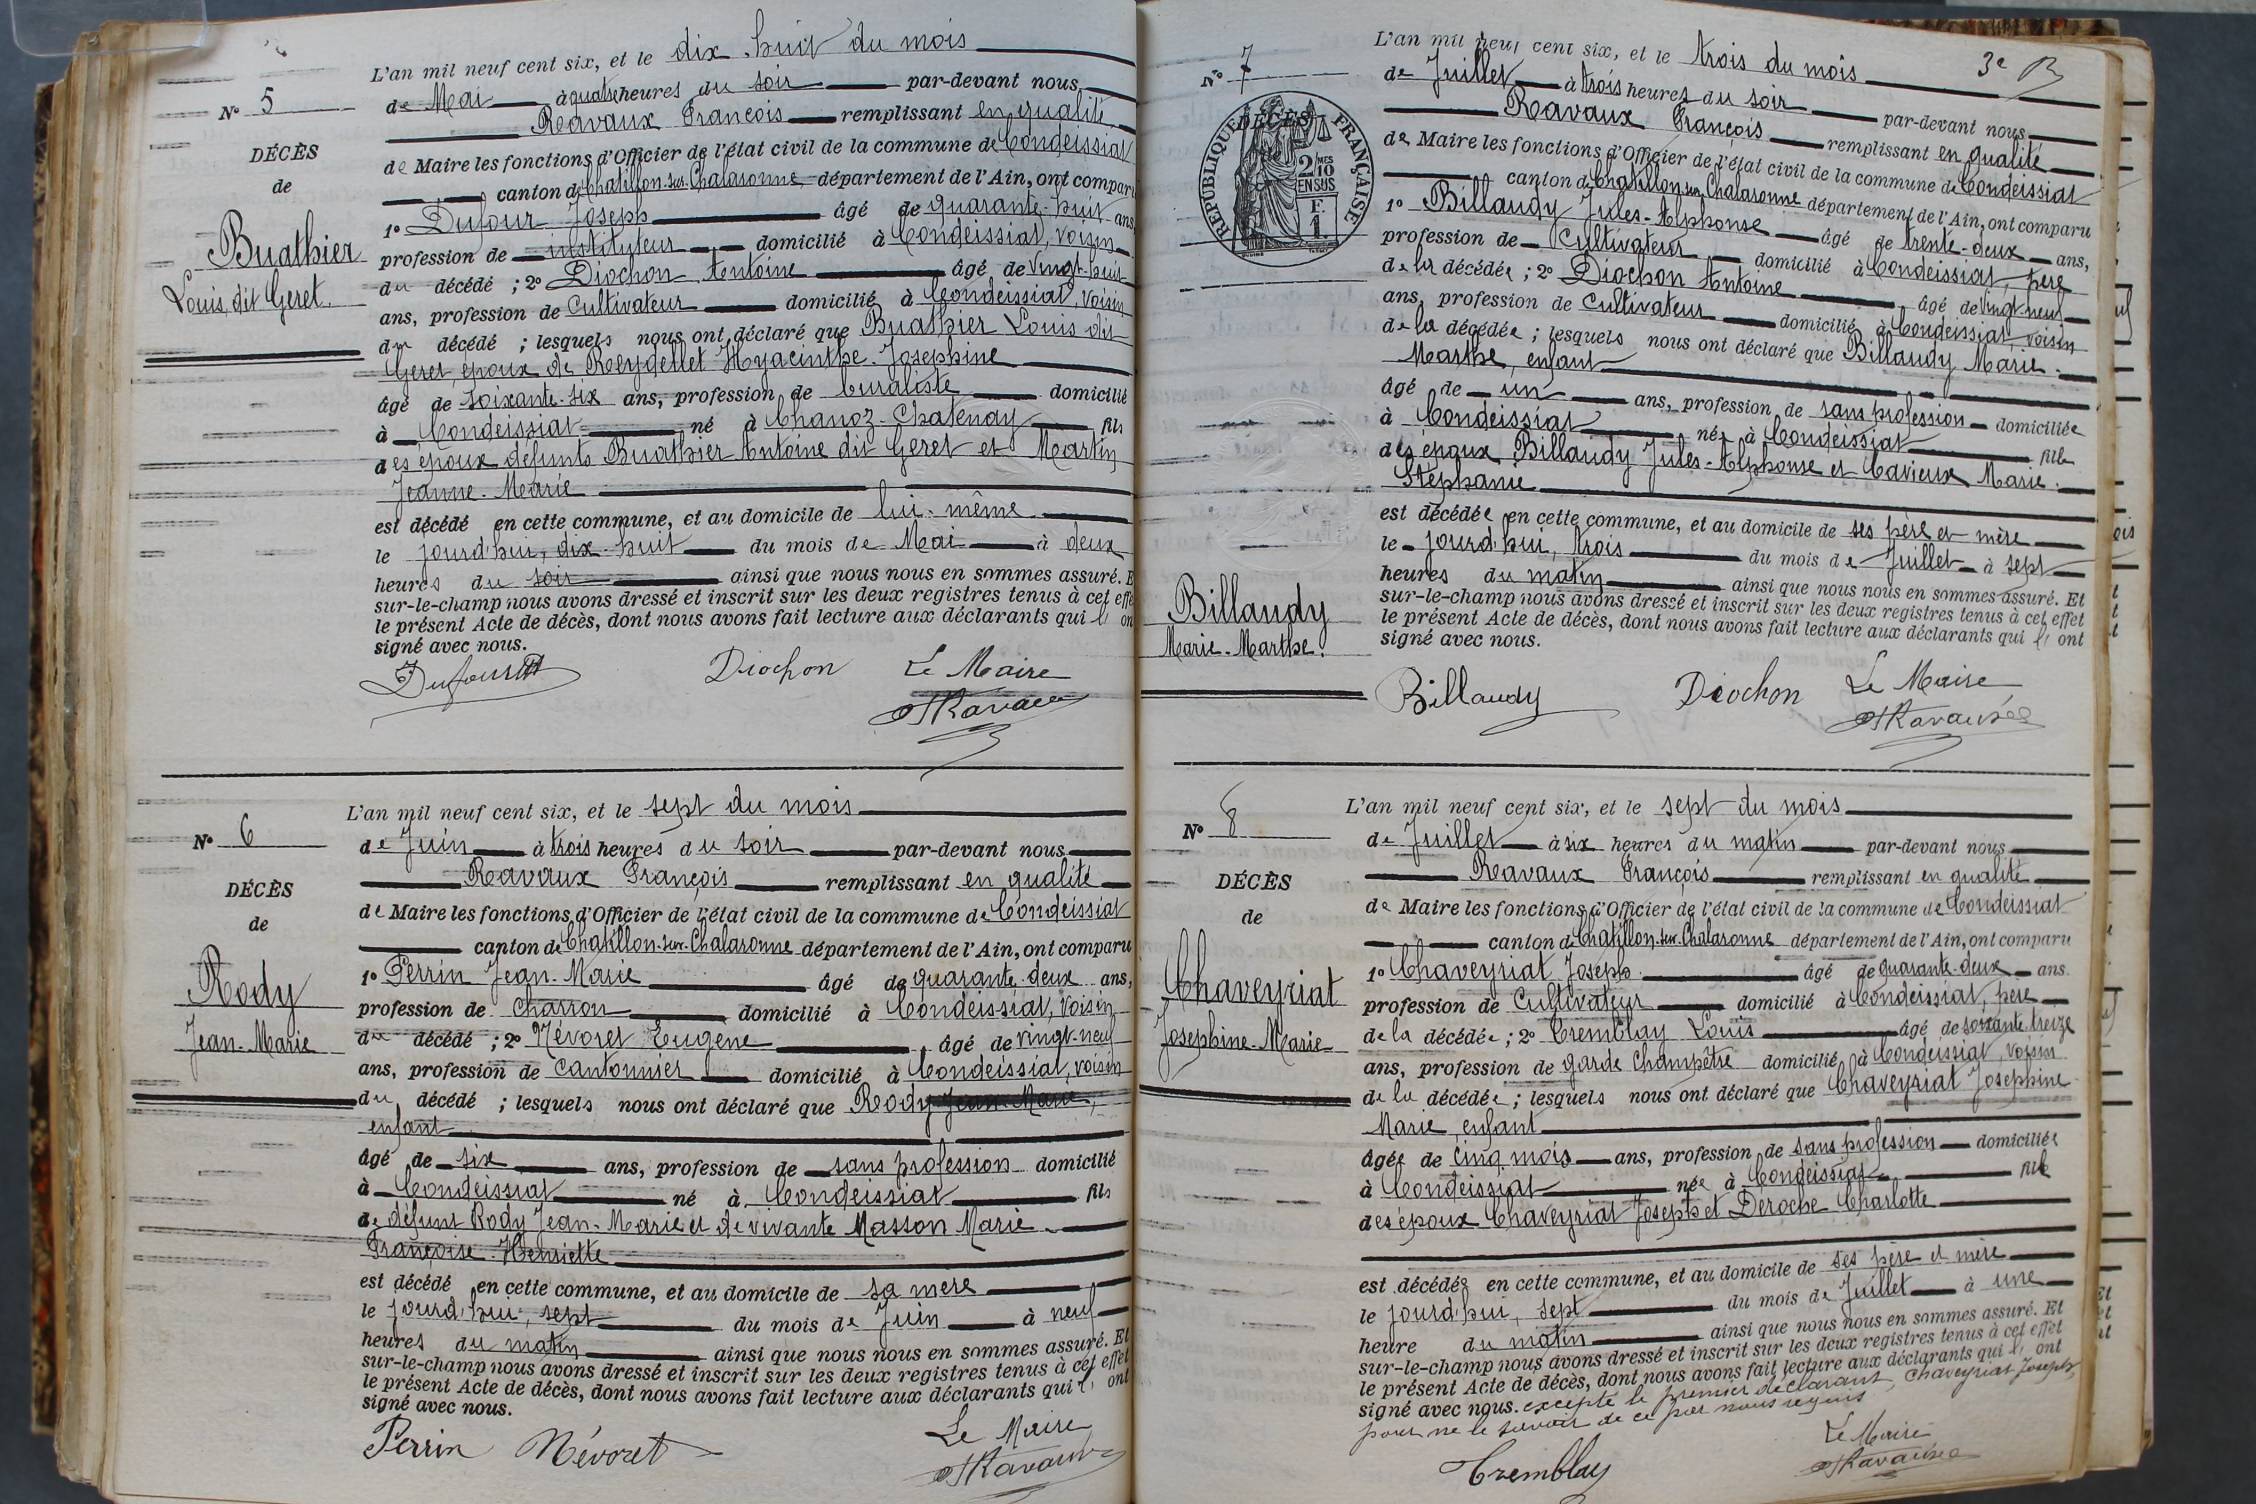 N° 5
DÉCÈS
de
Buathier
Louis, dit Geret.
L'an mil neuf cent six, et le dix-huit du mois
de Mai à quatre heures du soir par-devant nous
Ravaux François remplissant en qualité
de Maire les fonctions d'Officier de l'état civil de la commune de Condeissiat
canton de Chatillon-sur-Chalaronne, département de l'Ain, ont comparu
1° Dufour Joseph âgé de quarante-huit ans,
profession de instituteur domicilié à Condeissiat, voisin
du décédé ; 2° Diochon Antoine âgé de vingt-huit
ans, profession de Cultivateur domicilié à Condeissiat, voisin
du décédé ; lesquels nous ont déclaré que Buathier Louis dit
Geret, époux de Reydellet Hyacinthe-Josephine
âgé de soixante-six ans, profession de buraliste domicilié
à Condeissiat né à Chanoz-Chatenay fils
des époux défunts Buathier Antoine dit Geret et Martin
Jeanne-Marie
est décédé en cette commune, et au domicile de lui-même
le jourd'hui, dix-huit du mois de Mai à deux
heures du soir ainsi que nous nous en sommes assuré. E
sur-le-champ nous avons dressé et inscrit sur les deux registres tenus à cet effe
le présent Acte de décès, dont nous avons fait lecture aux déclarants qui l' on
signé avec nous.
Dufour Diochon Le Maire
Ravaux
N° 6
DÉCÈS
de
Rody
Jean-Marie
L'an mil neuf cent six, et le sept du mois
de Juin à trois heures du soir par-devant nous
Ravaux François remplissant en qualité
de Maire les fonctions d'Officier de l'état civil de la commune de Condeissiat
canton de Chatillon-sur-Chalaronne département de l'Ain, ont comparu
1° Perrin Jean-Marie âgé de quarante-deux ans,
profession de charron domicilié à Condeissiat, voisin
du décédé ; 2° Névoret Eugène âgé de vingt-neuf
ans, profession de cantonnier domicilié à Condeissiat, voisin
du décédé ; lesquels nous ont déclaré que Rody Jean-Marie,
enfant
âgé de six ans, profession de sans profession domicilié
à Condeissiat né à Condeissiat fils
de défunt Rody Jean-Marie et de vivante Masson Marie-
Françoise-Henriette
est décédé en cette commune, et au domicile de sa mère
le jourd'hui, sept du mois de Juin à neuf
heures du matin ainsi que nous nous en sommes assuré. Et
sur-le-champ nous avons dressé et inscrit sur les deux registres tenus à cet effet
le présent Acte de décès, dont nous avons fait lecture aux déclarants qui l' ont
signé avec nous.
Perrin Névoret Le Maire
Ravaux
3e
N° 7
RÉPUBLIQUE FRANÇAISE
DÉCÈS
2 MES
10
EN SUS
F.
1
Billaudy
Marie-Marthe.
L'an mil neuf cent six, et le trois du mois
de Juillet à trois heures du soir par-devant nous
Ravaux François remplissant en qualité
de Maire les fonctions d'Officier de l'état civil de la commune de Condeissiat
canton de Chatillon-sur-Chalaronne département de l'Ain, ont comparu
1° Billaudy Jules-Alphonse âgé de trente-deux ans,
profession de Cultivateur domicilié à Condeissiat, père
de la décédée ; 2° Diochon Antoine âgé de vingt-neuf
ans, profession de Cultivateur domicilié à Condeissiat, voisin
de la décédée ; lesquels nous ont déclaré que Billaudy Marie-
Marthe, enfant
âgé de un ans, profession de sans profession domiciliée
à Condeissiat née à Condeissiat fille
des époux Billaudy Jules-Alphonse et Cavieux Marie-
Stéphanie
est décédée en cette commune, et au domicile de ses père et mère
le jourd'hui, trois du mois de Juillet à sept
heures du matin ainsi que nous nous en sommes assuré. Et
sur-le-champ nous avons dressé et inscrit sur les deux registres tenus à cet effet
le présent Acte de décès, dont nous avons fait lecture aux déclarants qui l' ont
signé avec nous.
Billaudy Diochon Le Maire
Ravaux
N° 8
DÉCÈS
de
Chaveyriat
Josephine-Marie
L'an mil neuf cent six, et le sept du mois
de Juillet à six heures du matin par-devant nous
Ravaux François remplissant en qualité
de Maire les fonctions d'Officier de l'état civil de la commune de Condeissiat
canton de Chatillon-sur-Chalaronne département de l'Ain, ont comparu
1° Chaveyriat Joseph âgé de quarante-deux ans.
profession de Cultivateur domicilié à Condeissiat, père
de la décédée ; 2° Tremblay Louis âgé de soixante-treize
ans, profession de garde champêtre domicilié à Condeissiat, voisin
de la décédée ; lesquels nous ont déclaré que Chaveyriat Josephine-
Marie, enfant
âgée de cinq mois ans, profession de sans profession domiciliée
à Condeissiat née à Condeissiat fille
des époux Chaveyriat Joseph et Deroche Charlotte
est décédée en cette commune, et au domicile de ses père et mère
le jourd'hui, sept du mois de Juillet à une
heure du matin ainsi que nous nous en sommes assuré. Et
sur-le-champ nous avons dressé et inscrit sur les deux registres tenus à cet effet
le présent Acte de décès, dont nous avons fait lecture aux déclarants qui l' ont
signé avec nous. excepté le premier déclarant, Chaveyriat Joseph,
pour ne le savoir de ce par nous requis
Tremblay Le Maire
Ravaux